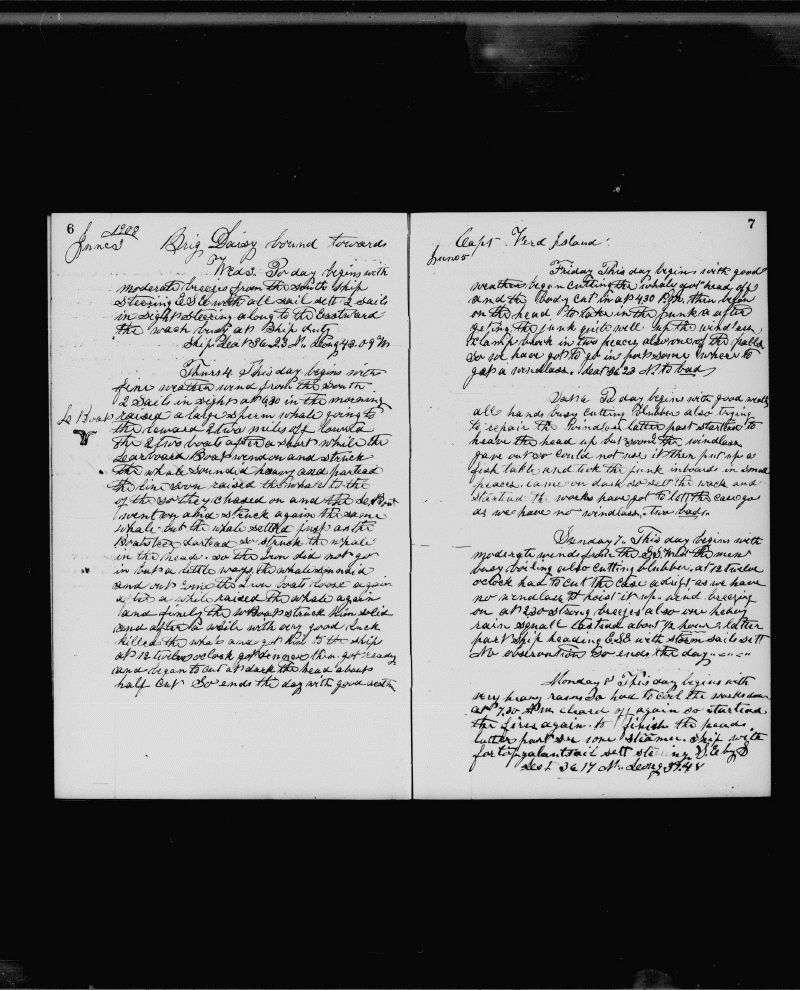 6
1908
June 3
Brig Daisy bound towards
Weds 3. To day begins with
moderate breezes from the South Ship
Steering ESE with all sail sett 2 sails
in sight steering along to the Eastward
the wach busy at Ship duty
Ship Leat 36-23 N. Long 43.09 W
Thurs 4. This day begins with
fine weather wind from the South
2 Sails in sight at 630 in the morning
raised a large Sperm whale going to
the leward 2 two miles off lowrd
the 2 two boats after a short while the
Learboard Boat wend on and struck
the whale sounded heavy and parted
the line soon raised the whale to the
of the so they chased on and the
went on and struck again the same
whale but the whale settld just as the
Boatsteer darted so struck the whale
in the head. so the iron did not go
in but a little ways, the whale sounded
and out come the iron boats loose again
after a while raised the whale again
and finely the Boat struck him solid
and after a while with very good luck
killed the whale and got him to the ship
at 12 twelve oclock got dinner then got ready
and began to cut at dark the head about
half Cut So ends the day with good
7
Capt Verd Island
June 5
Friday This day begins with good
weather begon cutting the whale got head off
and the Body Cat in at 430 P.M. then begon
on the head to take in the junk a after
geting the junk quite well up the windlass
clamp brock in two peaces, also one of the palls
So we have got to go in port some where to
gat a windlass. Leat 3623 N. to bad
Satu To day begins with good
all hands busy cutting blubber also trying
to repair the windlass latter part started to
heave the head up but soon the windlass
gave out so could not use it then put up a
fish takle and tock the junk inboard in small
peaces, came on dark so sett the wach and
started the works have got to lett the case go
as we have no windlass. two bad.
Sunday 7. This day begins with
moderate wind from the the men
busy boiling also cutting blubber. at 12 twelve
oclock had to cut the case adrift as we have
no windlass to hoist it up. wind breezing
on at 230 strong breezes also one heavy
rain squall lasted about 1/2 hour, latter
part ship heading ESE with storm sails sett
No observation So ends the day
Monday 8 This day begins with
very heavy rain So had to cool the works down
at 7.30 A.M. cleard off again so started
the fires again. to finish the heads.
latter part see some steamer. Ship with
fortopgalantsail sett steering S.E. by S
Leat 36 17 N. Long 39.48